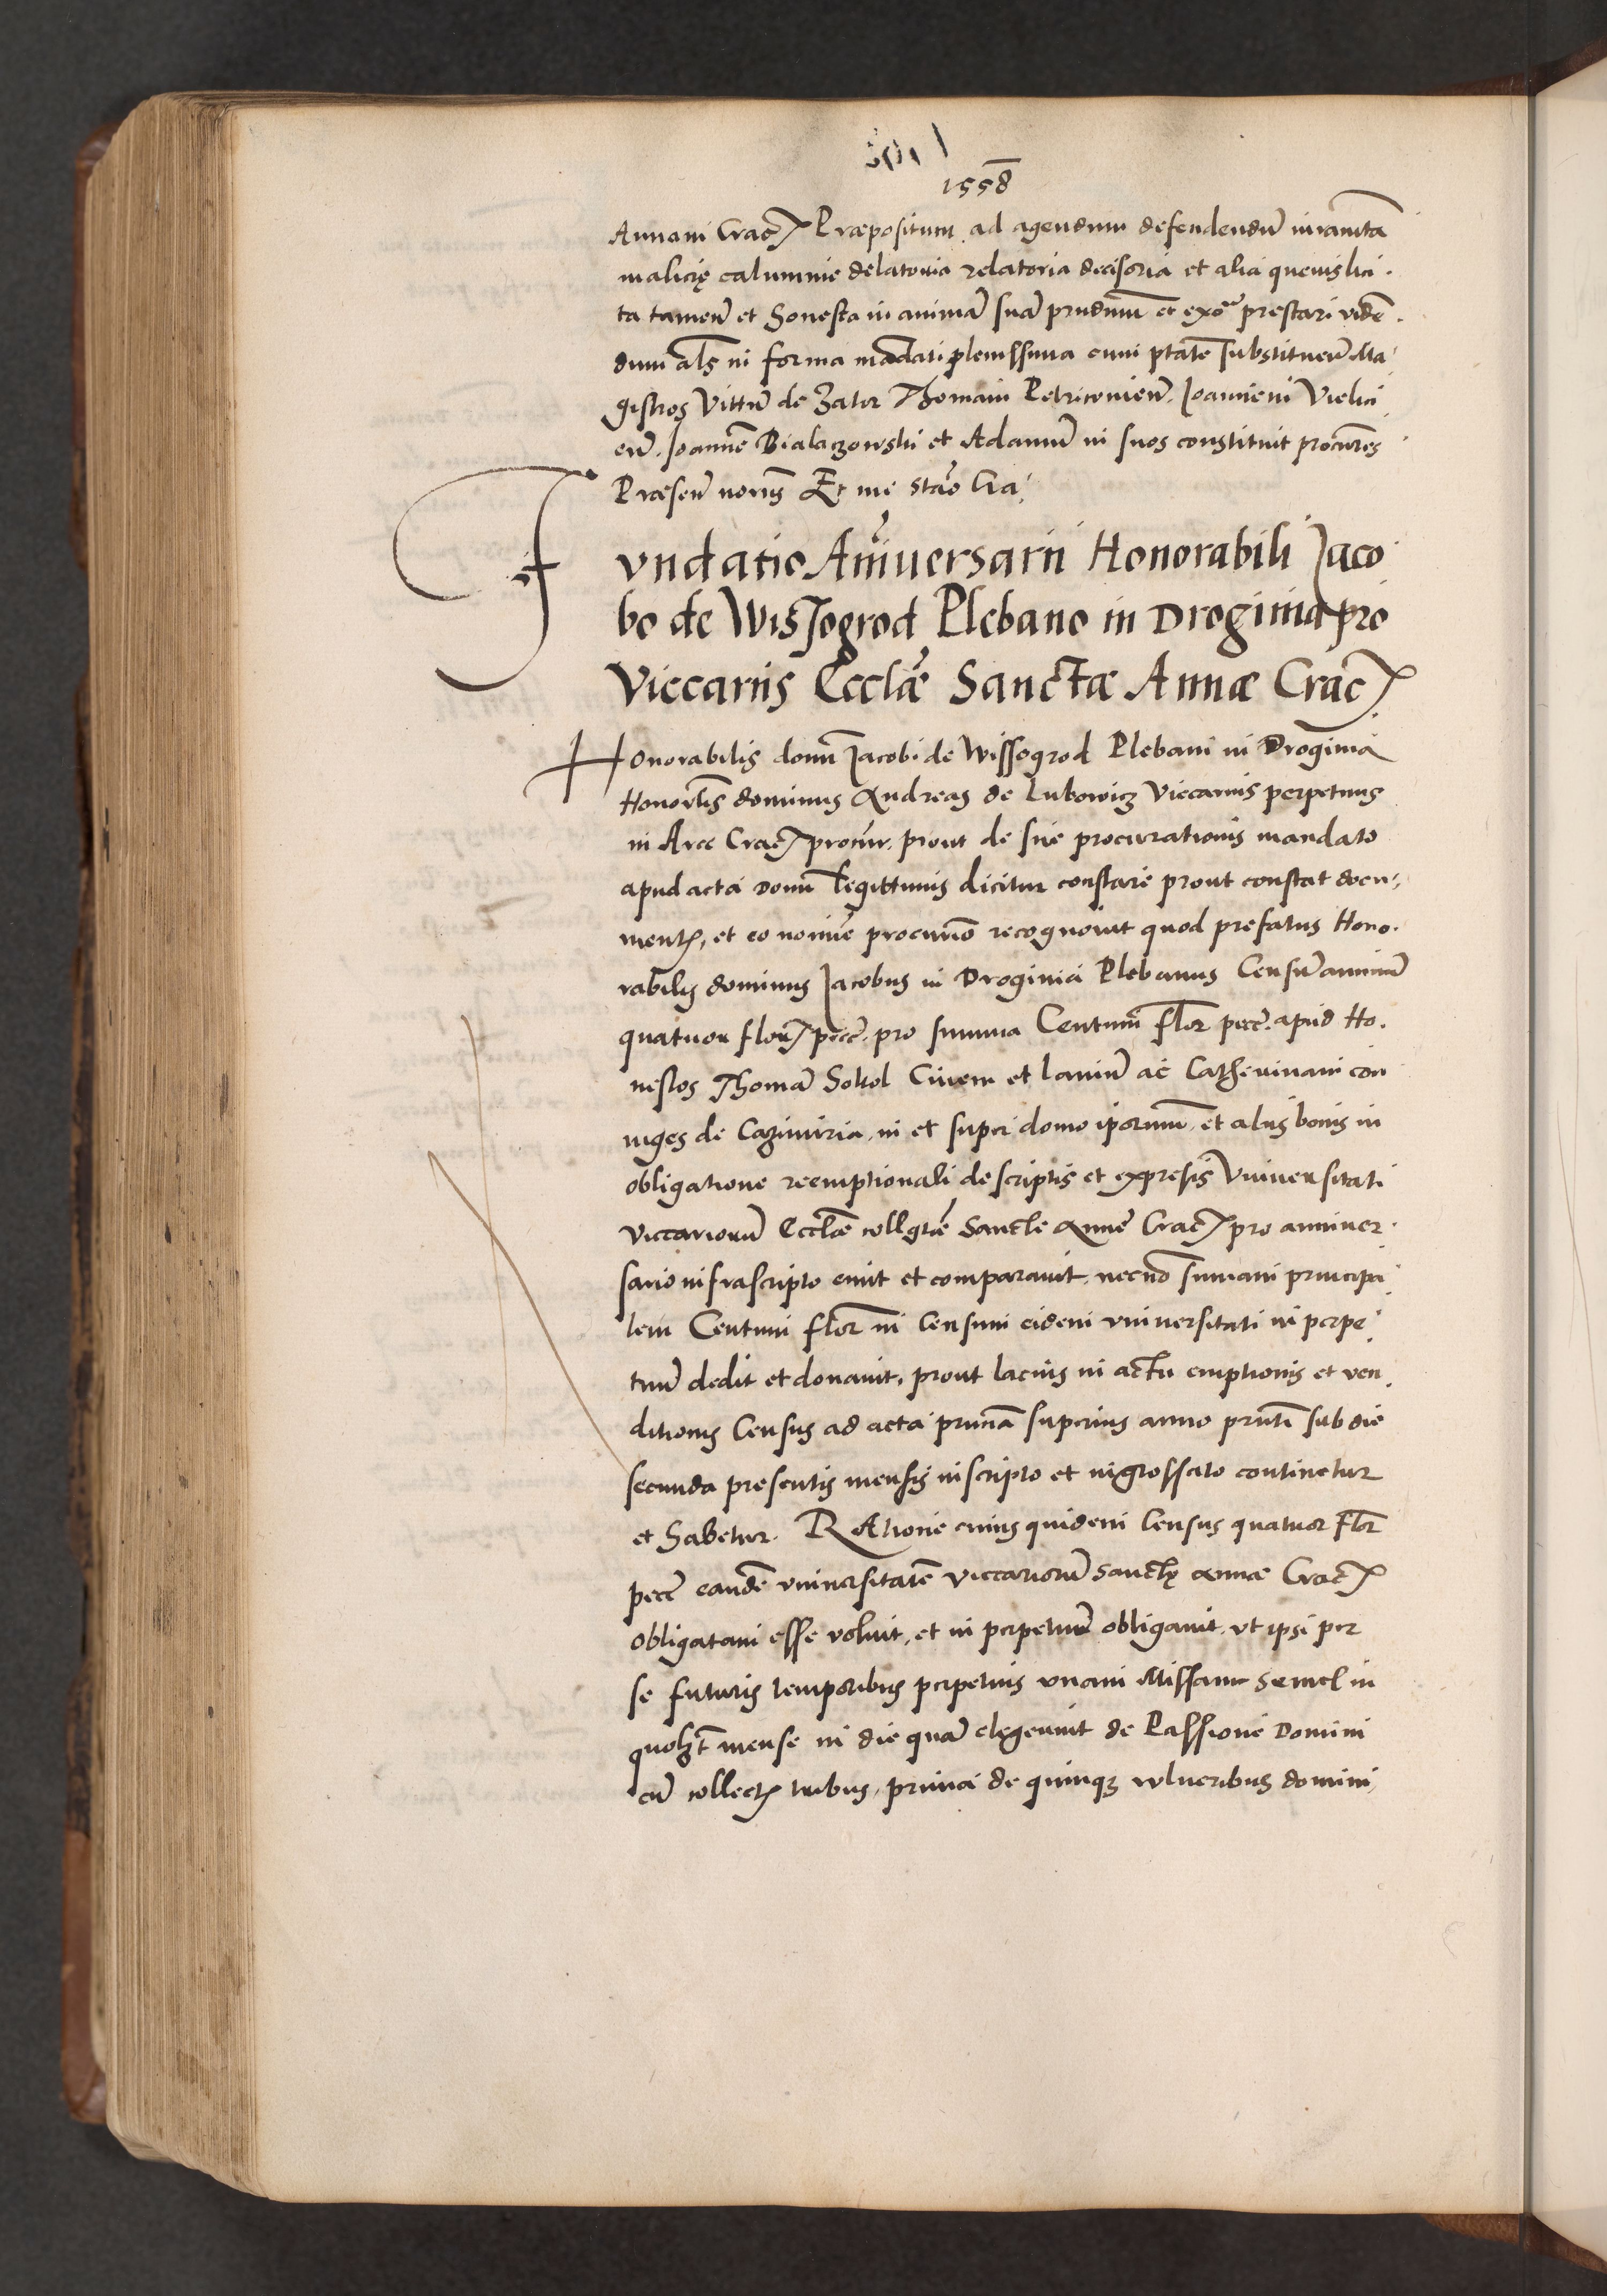 1558
Annam Crac Præpositum ad agendum defendendũ iuramta
malicię calumnie delatoria relatoria decisoria et alia quevis lici
ta tamen et honesta in animã suã prndum et exõ prestari viden
dum als in forma mãdati plenissima cum ptate substituen Ma
gistros Vittũ de Zator Thomam Petriconien Joannem Vielici
en Joannẽ Bialaczowski et Adamũ in suos constituit procures
Præsen nõris Et me stão Cra
Fvndatio Añiuersarii Honorabili Jaco
bo de Wissogrod Plebano in Droginia pro
Viccariis Ecclæ Sanctæ Annæ Crac
Honorabilis domi Jacobi de Wissogrod Plebani in Droginia
Honorlis dominus Andreas de Lubowicz Viccarius perpetuus
in Arce Crac procur. prout de sue procurationis mandato
apud acta domi legittimis dicitur constare prout constat docu
ment, et eo nomie procurio recognovit quod prefatus Hono
rabilis dominus Jacobus in Droginia Plebanus Censũ annuũ
quatuor flor pecc. pro summa Centum flor pecc. apud Ho
nestos Thomã Sokol Civem et laniũ ac Catherinam con
iuges de Cazimiria, in et super domo ipsorum, et aliis bonis in
obligatione reemptionali descriptis et expressis Vniversitati
viccariorũ Ecclæ collgtæ Sancte Anne Crac pro anniver
sario infrascripto emit et comparavit, necnõ summam principa
lem Centum flor in Censum eidem vniversitati in perpe
tuũ dedit et donavit, prout lacius in actu emptionis et ven
ditionis Census ad acta prnia superius anno prnti sub die
secunda presentis mensis inscripto et ingrossato continetur
et habetur. RAtione cuius quidem Census quatuor Flor
pecc eandẽ vniversitatẽ viccariorũ sanctę Annæ Crac
obligatam esse voluit, et in perpetuũ obligavit, vt ipsi per
se futuris temporibus perpetuis vnam Missam semel in
quolzt mense in die quã elegerint de Passione Domini
cũ collect tribus, prima de quinqz vulneribus domini,